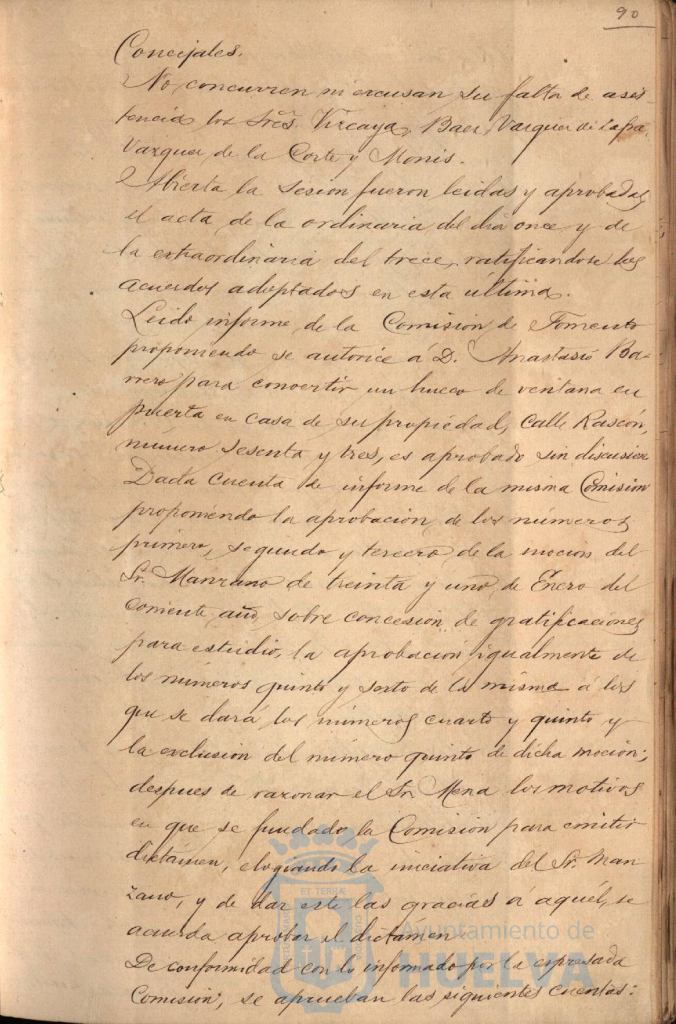 90
Concejales.
No concurren ni excusan su falta de asis
tencia los Sres. Vizcaya, Baez, Vazquez de Zafra,
Vazquez de la Corte y Monis.
Abierta la sesion fueron leidas y aprobadas
el acta de la ordinaria del dia once y de
la extraordinaria del trece, ratificandose los
acuerdos adoptados en esta última.
Leido informe de la Comision de Fomento
proponiendo se autorice á D. Anastasio Ba-
rrero para convertir un hueco de ventana en
puerta en casa de su propiedad, calle Rascón,
numero sesenta y tres, es aprobado sin discusion
Dada cuenta de informe de la misma Comision
proponiendo la aprobacion de los números
primero, segundo y tercero de la mocion del
Sr. Manzano de treinta y uno de Enero del
corriente año, sobre concesion de gratificaciones
para estudio, la aprobacion igualmente de
los números quinto y sexto de la misma á los
que se dará los números cuarto y quinto y
la exclusion del número quinto de dicha mocion;
despues de razonar el Sr. Mena los motivos
en que se fundado la Comision para emitir
dictámen, elogiando la iniciativa del Sr. Man
zano, y de dar este las gracias á aquél, se
acuerda aprobar el dictámen
De conformidad con lo informado por la expresada
Comision, se aprueban las siguientes cuentas:
Ayuntamiento de
HUELVA